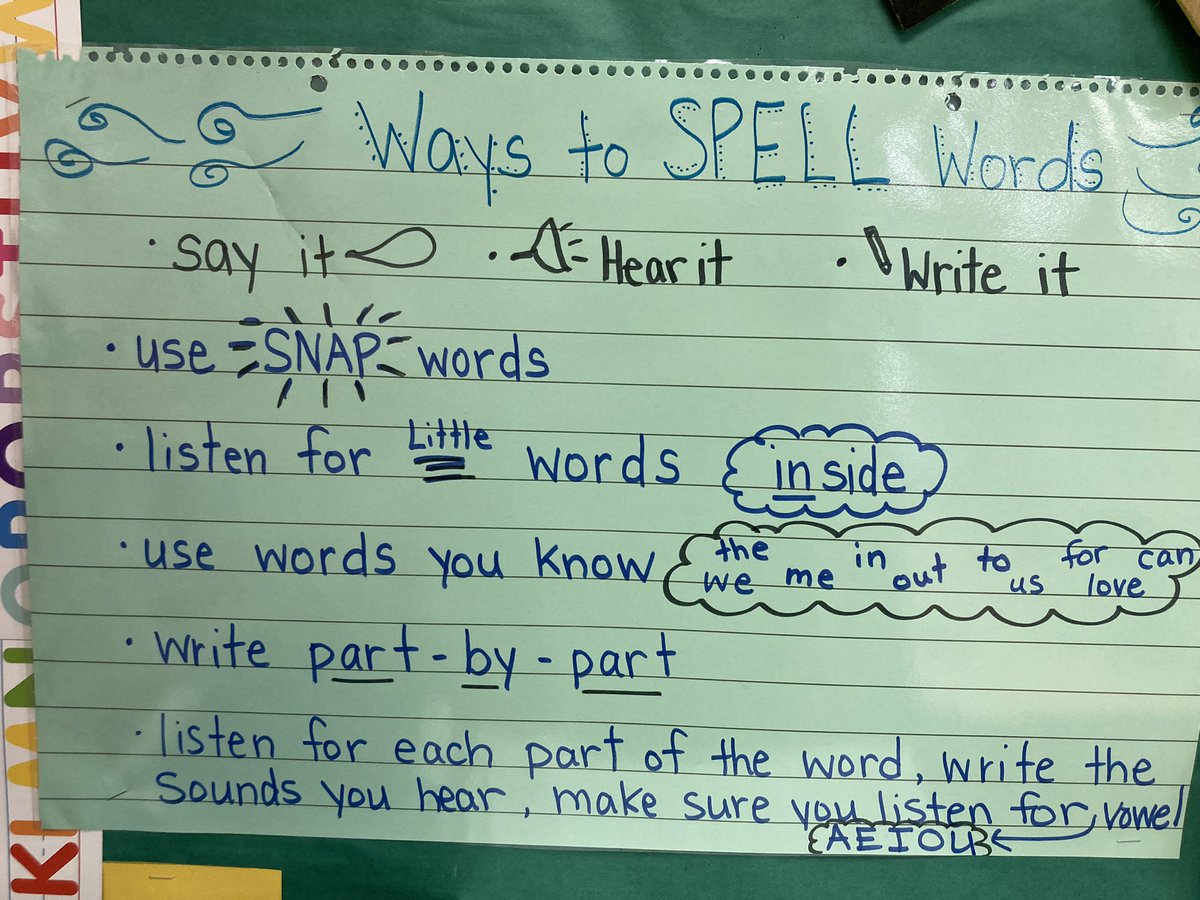 Ways to SPELL Words
• say it • Hear it • Write it
• use SNAP words
• listen for Little words inside
• use words you know the in to for can
we me out us love
• write part-by-part
• listen for each part of the word, write the
sounds you hear, make sure you listen for vowel
AEIOU